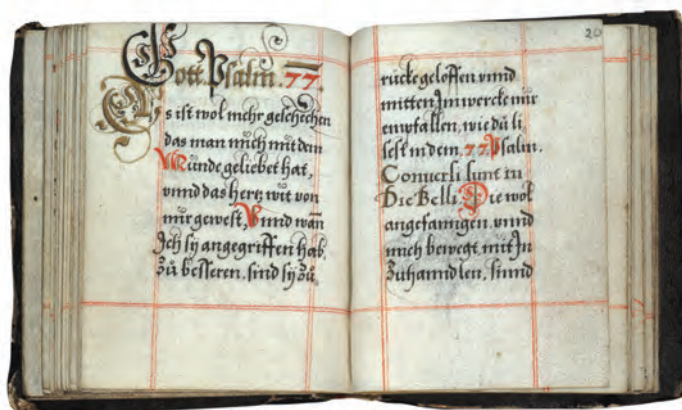 Gott. Psalm. 77.
Es ist wol mehr geschechen
das man mich mit dem
Munde geliebet hat,
vnnd das hertz wit von
mir gewest, Vnnd wan̄
Ich sy angegriffen hab,
Zů besseren, sind sy Zů
20
rucke geloffen vnnd
mitten Im wercke mir
entpfallen, wie dů li
sest in dem .77. Psalm.
Conuersi sunt in
Die Belli. Die wol
angefanngen, vnnd
mich bewegt, mit In
Zuhanndlen, sinnd